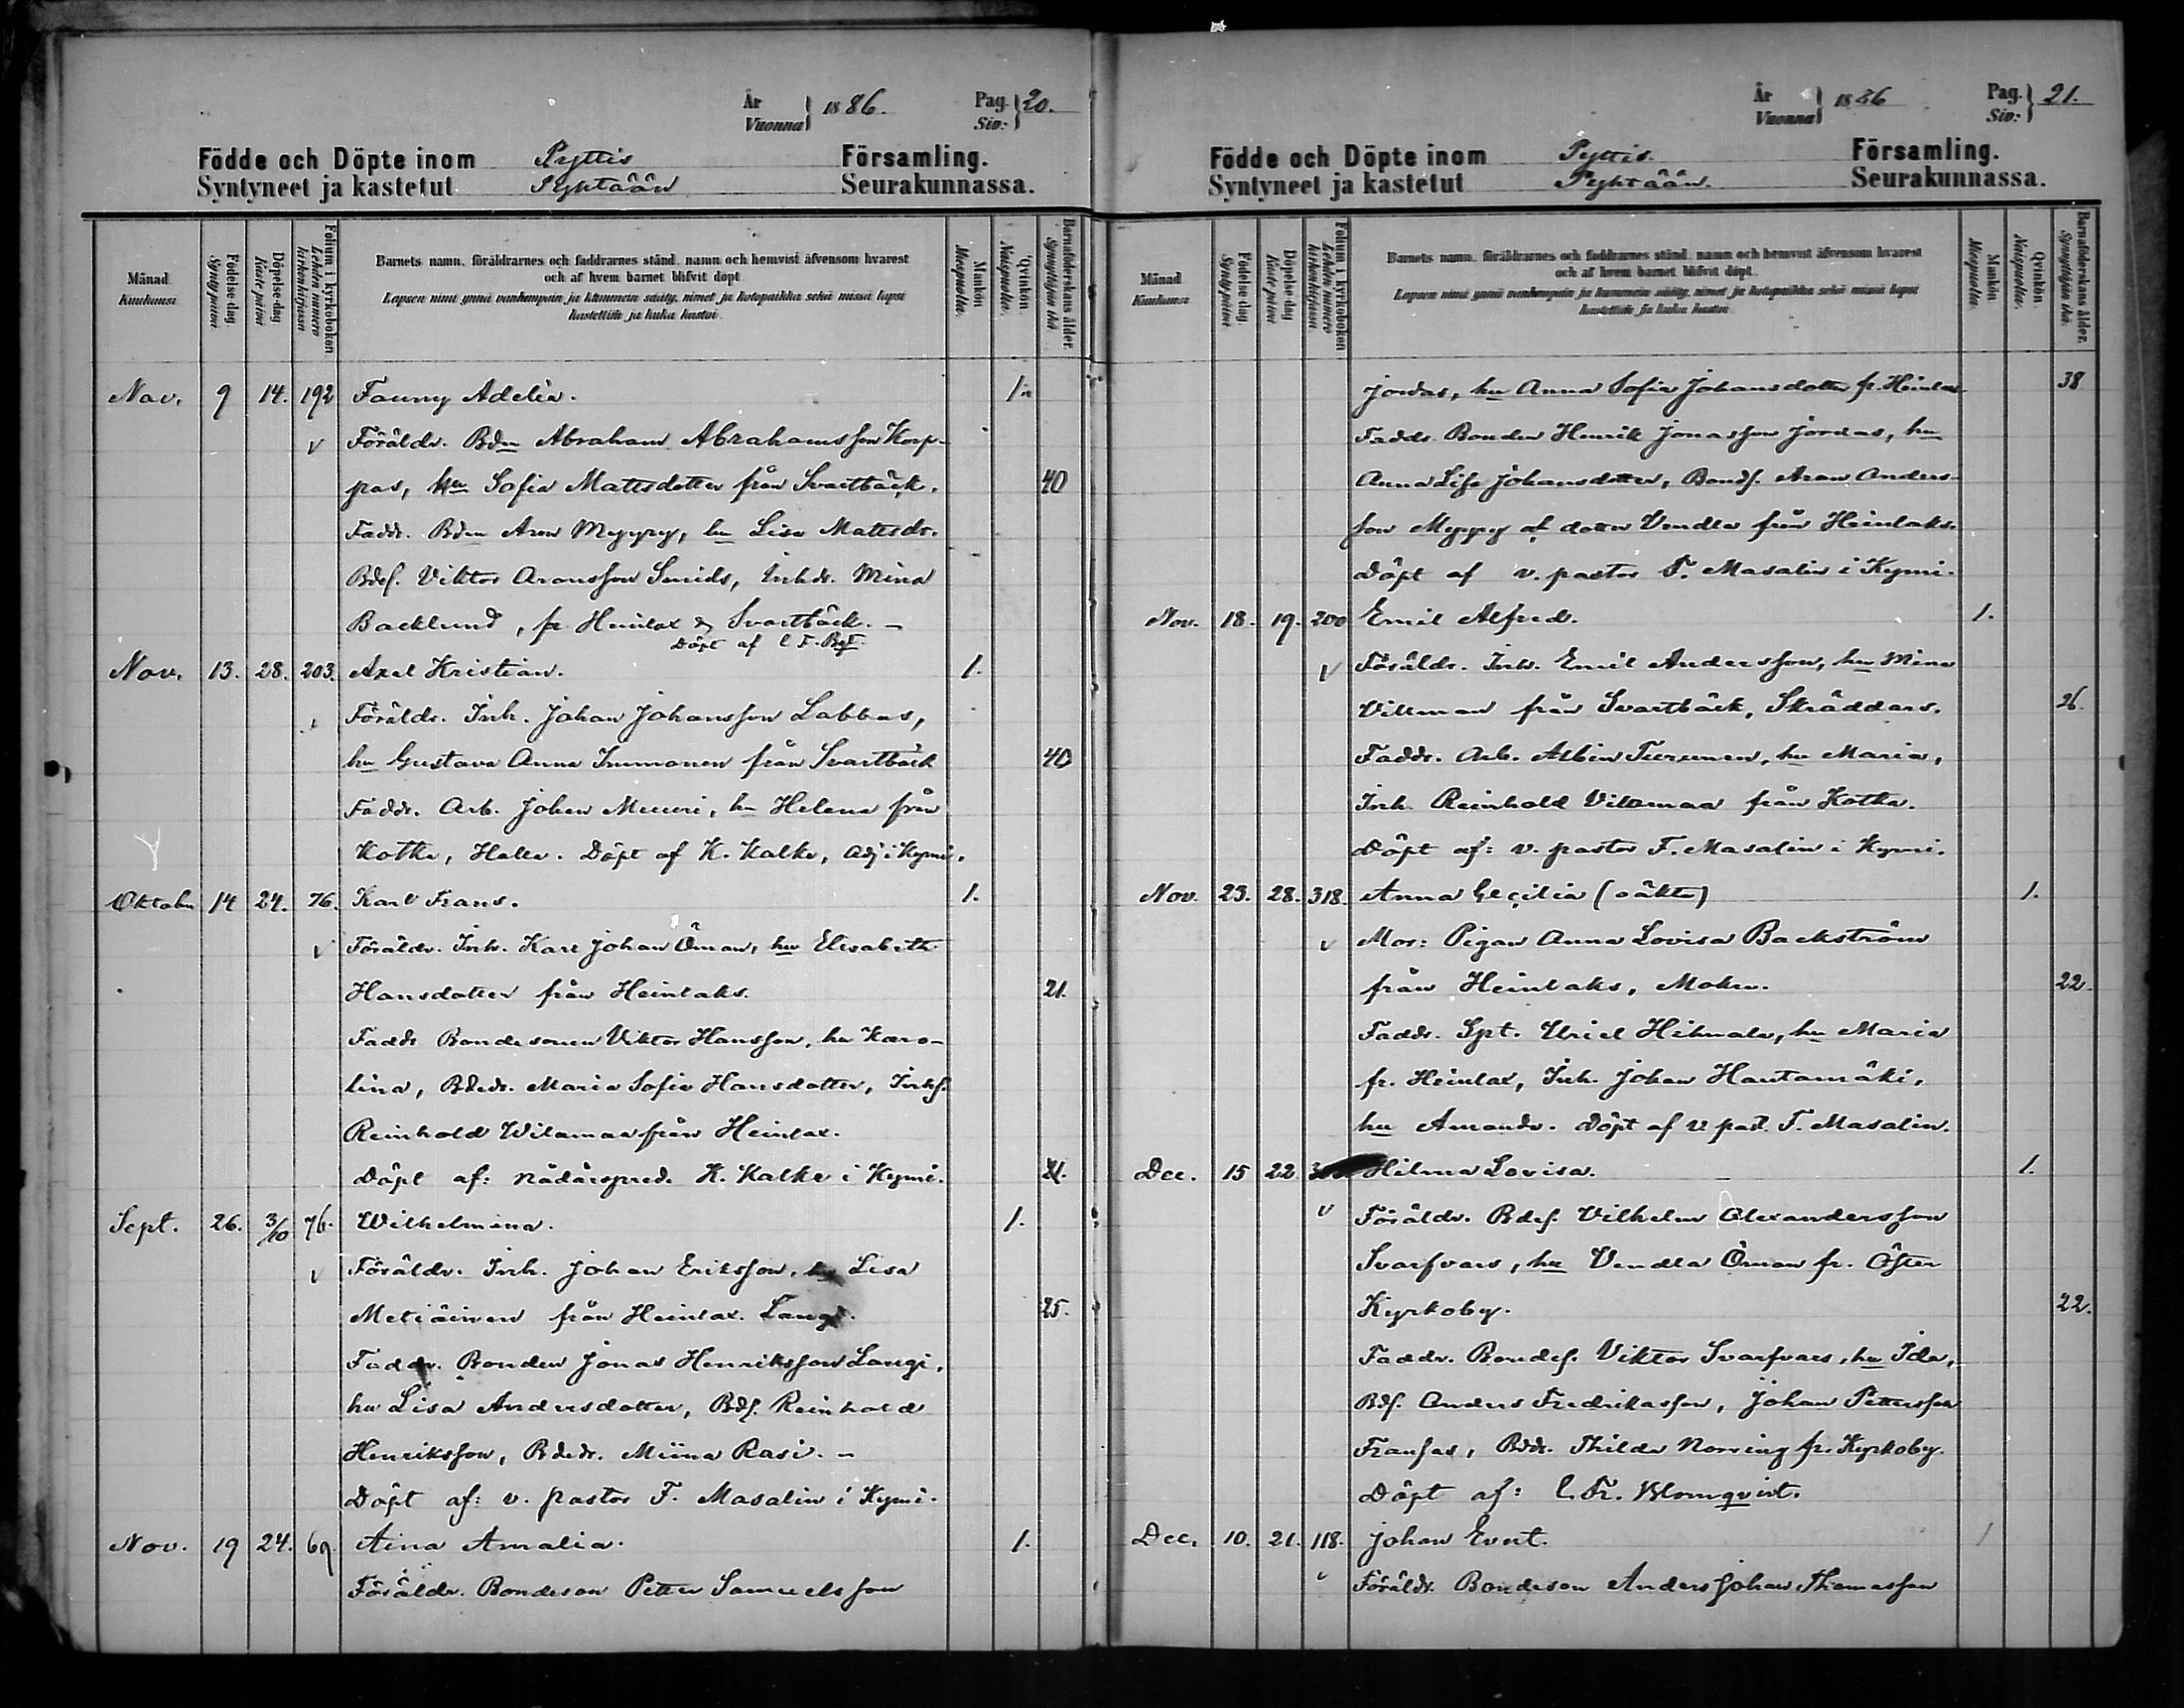 År
Vuonna } 1886.
Pag.
Siv: } 20.
Födde och Döpte inom Pyttis Församling.
Syntyneet ja kastetut Pyhtään Seurakunnassa.
Månad
Kuukausi
Födelse dag
Syntypäivä
Döpelse-dag
Kaste päivä
Folium i kyrkoboken
Lehden numero kirkonkirjassa
Barnets namn, föräldrarnes och faddrarnes stånd, namn och hemvist äfvensom hvarest
och af hvem barnet blifvit döpt.
Lapsen nimi ynnä vanhempain ja kummein sääty, nimet ja kotopaikka sekä missä lapsi
kastettiin ja kuka kastoi.
Mankön
Miespuolta.
Qvinkön.
Naispuolta.
Barnaföderskans ålder.
Synnyttäjän ikä.
Nov. 9 14. 192 Fanny Adelia. 1.
v Föräldr. Bdn Abraham Abrahamsson Korp-
pas, hu Sofia Mattsdotter från Svartbäck. 40
Faddr. Bdn Aron Myyry, hu Lisa Mattsdr.
Bdes. Viktor Aronsson Smids, Inhdr. Mina
Backlund, fr. Heinlax & Svartbäck. –
Döpt af C. F. Bqt.
Nov. 13. 28. 203. Axel Kristian. 1.
Föräldr. Inh. Johan Johansson Labbas,
hu Gustava Anna Immonen från Svartbäck 40
Faddr. Arb. Johan Muuri, hu Helena från
Kotka, Halla. Döpt af K. Kalke, Adj i Kymi.
Oktober 14 24. 76. Karl Frans. 1.
v Föräldr. Inh. Karl Johan Öman, hu Elisabeth
Hansdotter från Heinlaks. 21.
Faddr Bondesonen Viktor Hansson, hu Karo-
lina, Bdedr. Maria Sofia Hansdotter, Inhs.
Reinhold Wilamaa från Heinlax.
Döpt af: nådårspred. K. Kalke i Kymi. 21.
Sept. 26. 3/10 76. Wilhelmina. 1.
v Föräldr. Inh. Johan Eriksson, hu Lisa
Metiäinen från Heinlax. Langi. 25.
Faddr. Bonden Jonas Henriksson Langi,
hu Lisa Andersdotter, Bds. Reinhold
Henriksson, Bdedr. Miina Rasi. –
Döpt af: v. pastor F. Masalin i Kymi.
Nov. 19 24. 69. Aina Amalia. 1.
Föräldr. Bondeson Petter Samuelsson
År
Vuonna } 1886
Pag.
Siv: } 21.
Födde och Döpte inom Pyttis. Församling.
Syntyneet ja kastetut Pyhtään. Seurakunnassa.
Månad
Kuukausi
Födelse dag
Syntypäivä
Döpelse dag
Kaste päivä
Folium i kyrkoboken
Lehden numero kirkonkirjassa
Barnets namn, föräldrarnes och faddrarnes stånd, namn och hemvist äfvensom hvarest
och af hvem barnet blifvit döpt.
Lapsen nimi ynnä vanhempain ja kummein sääty, nimet ja kotopaikka sekä missä lapsi
kastettiin ja kuka kastoi.
Mankön
Miespuolta.
Qvinkön.
Naispuolta.
Barnaföderskans ålder.
Synnyttäjän ikä.
Jordas, hu Anna Sofia Johansdotter fr. Heinlax 38
Faddr. Bonden Henrik Jonasson Jordas, hu
Anna Lisa Johansdotter, Bonds. Aron Anders-
son Myyry o. dotter Vendla från Heinlaks.
Döpt af v. pastor F. Masalin i Kymi.
Nov. 18. 19. 200 Emil Alfred. 1.
v Föräldr. Inh. Emil Andersson, hu Mina
Villman från Svartbäck, Skräddars. 26.
Faddr. Arb. Albin Turunen, hu Maria,
Inh. Reinhold Vilamaa från Kotka.
Döpt af: v. pastor F. Masalin i Kymi.
Nov. 23. 28. 318. Anna Cecilia (oäkta) 1.
v Mor: Pigan Anna Lovisa Backström
från Heinlaks, Moken. 22.
Faddr. Spt. Uriel Hihnala, hu Maria
fr. Heinlax, Inh. Johan Hautamäki,
hu Amanda. Döpt af v. past. F. Masalin.
Dec. 15 22 Hilma Lovisa. 1.
v Föräldr. Bdes. Vilhelm Alexandersson
Svarfvars, hu Vendla Öman fr. Öster
Kyrkoby. 22.
Faddr. Bondes. Viktor Svarfvars, hu Ida,
Bds. Anders Fredriksson, Johan Pettersson
Fransas, Bdr. Thilda Norring fr. Kyrkoby.
Döpt af: C. Fr. Blomqvist.
Dec. 10. 21. 118. Johan Evert. 1
v Föräldr. Bondeson Anders Johan Thomasson